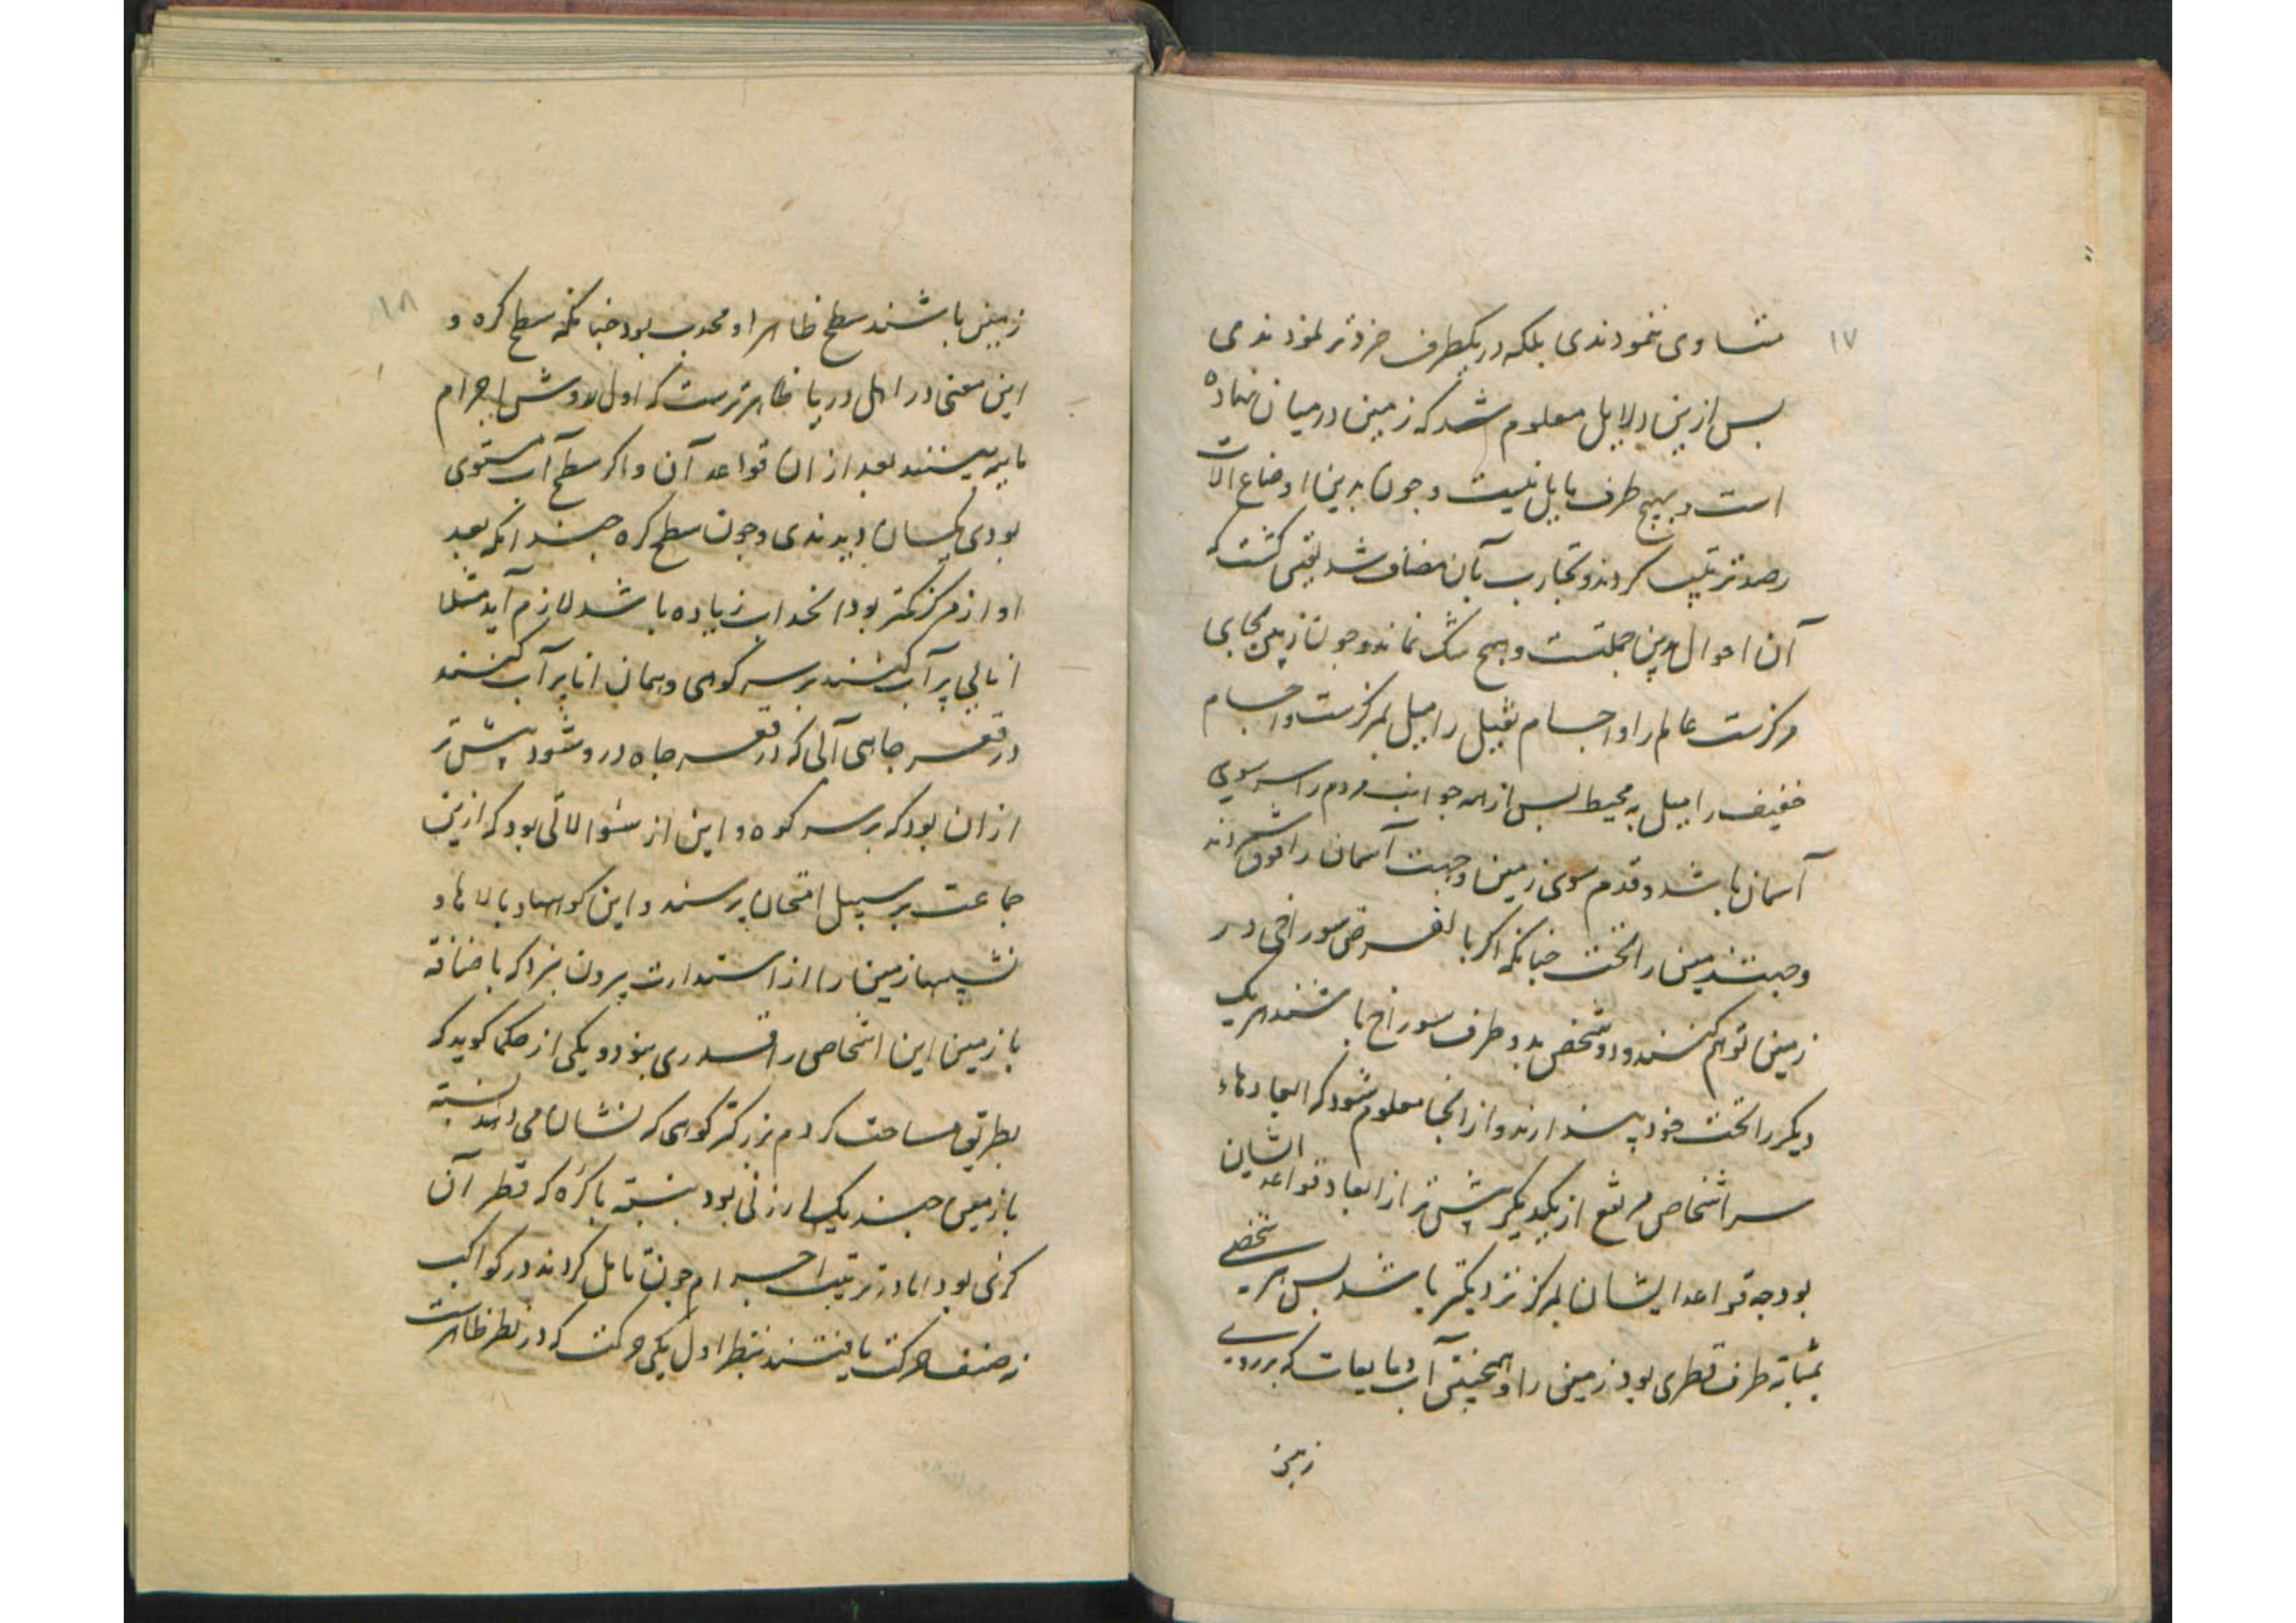 ۱۷
متساوی ننمودندی بلکه در یکطرف خردتر نمودندی
بس ازین دلایل معلوم شد که زمین در میان نهاده
است و بهیچ طرف مایل نیست و جون بدین اوضاع الات
رصد ترتیب کردند و تجارب بآن مضاف شد یقین کشت که
آن احوال برین جملتست و هیج شک نماند و جون زمین بجای
مرکزست عالم را و اجسام ثقیل را میل بمرکزست و اجسام
خفیف را میل به محیط بس از همه جوانب مردم را سر سوی
آسمان باشد و قدم سوی زمین و جهت آسمان را فوق شمردند
و جهت زمین را تحت جنانکه اکر بالفرض سوراخی در
زمین توهم کنند و دو شخص بدو طرف سوراخ باشند هریک
دیکر را تحت خود پندارند و از انجا معلوم شود که ابعادهاء
سر اشخاص مرتفع از یکدیکر بیش تر از ابعاد قواعد ایشان
بود جه قواعد ایشان بمرکز نزدیکتر باشد بس هر شخصی
بمثابه طرف قطری بود زمین را و همجنین آب و مایعات که بر روی
زمین
۱۸
زمین باشند سطح ظاهر او محدب بود جنانکه سطح کره و
این معنی در اهل دریا ظاهرترست که اول روش اجرام
مابیه بینند بعد از ان قواعد آن و اکر سطح آب مستوی
بودی یکسان دیدندی و جون سطح کره جندانکه بعد
او از مرکز کمتر بود انحداب زیاده باشد لازم آید مثلا
انایی پر آب کنند بر سر کوهی و همان انا پر آب کنند
در قعر جاهی آبی که در قعر جاه درو شود بیش تر
از ان بود که بر سر کوه و این از سئوالاتی بود که ازین
جماعت بر سبیل امتحان پرسند و این کوهها و بالاها و
نشیبها زمین را از استدارت بیرون نبرد که باضافه
با زمین این اشخاص را قدری نبود و یکی از حکما کوید که
بطریق مساحت کردم بزرکتر کوهی که نشان می دهند نسبته
با زمین جند یک ارزنی بود بنسبته با کره که قطر آن
کزی بود اما در ترتیب اجرام جون تامل کردند در کواکب
نه صنف حرکت یافتند بنظر اول یکی حرکت که در نظر ظاهرست